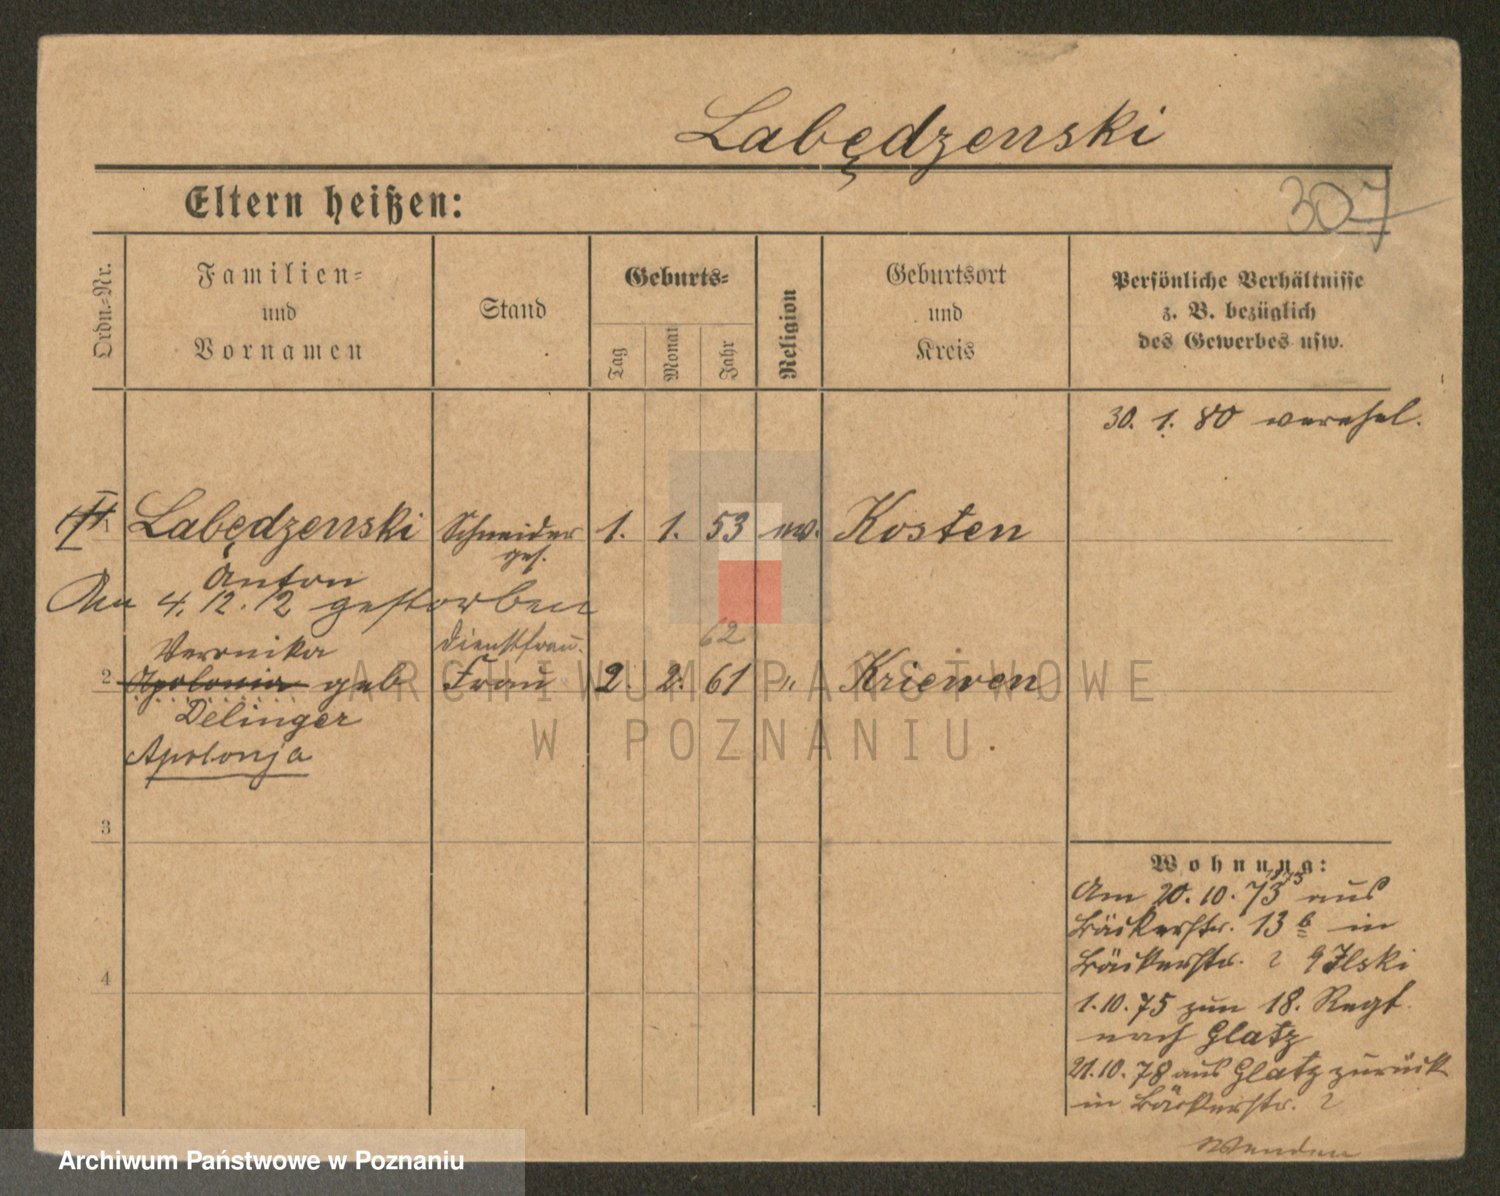 Labędzenski
Eltern heißen:
307
Ordn.-Nr.
Familien-
und
Vornamen
Stand
Geburts-
Tag
Monat
Jahr
Religion
Geburtsort
und
Kreis
Persönliche Verhältnisse
z. B. bezüglich
des Gewerbes usw.
30. 1. 80 verehel.
1 Labędzenski Schneider 1. 1. 53 Kosten
ges.
Anton
Am 4. 12. 12 gestorben
Veronika Dienstfrau. 62
2 Apolonia geb Frau 2. 2. 61 " Kriewen
Delinger
Apolonja
3
4
Wohnung:
Am 20. 10. 73 aus
Bäckerstr. 13 b in
Bäckerstr. 2
1. 10. 75 zum 18. Regt.
nach Glatz
21. 10. 78 aus Glatz zurück
in Bäckerstr. 2
Wenden
ARCHIWUM PAŃSTWOWE
W POZNANIU
Archiwum Państwowe w Poznaniu